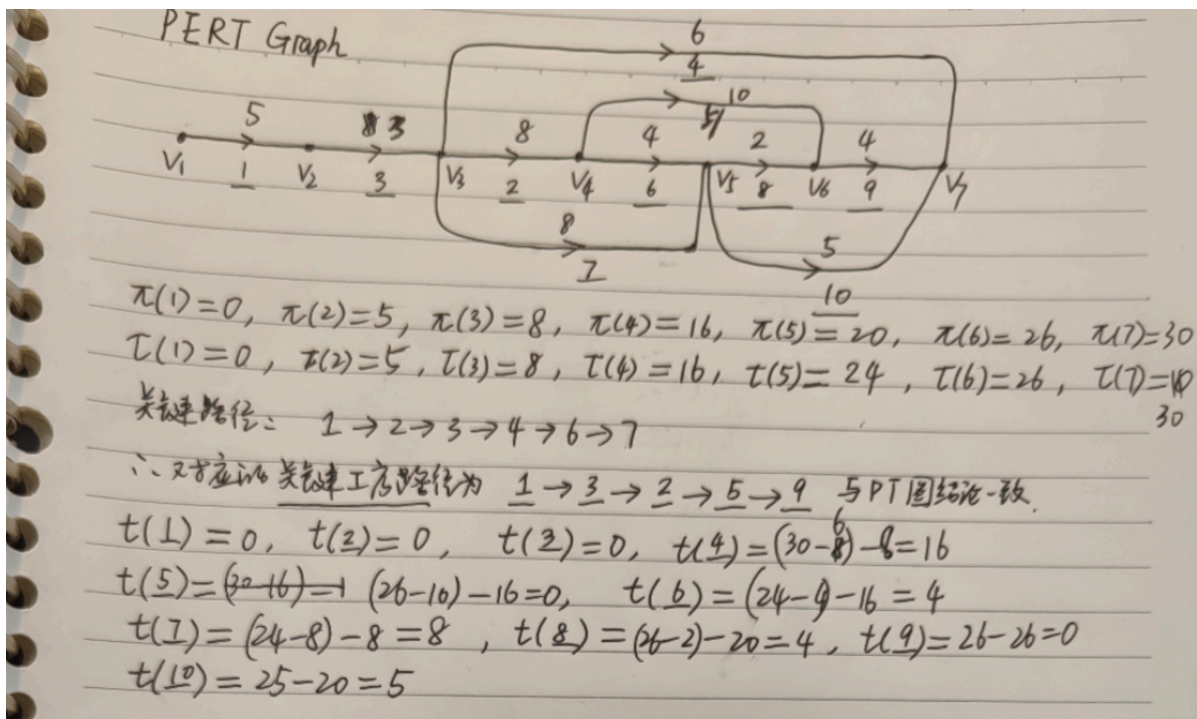 PERT Graph
6
4
10
5
5 3 8 4 2 4
V1 V2 V3 V4 V5 V6 V7
1 3 2 6 8 9
8 5
7 10
π(1)=0, π(2)=5, π(3)=8, π(4)=16, π(5)=20, π(6)=26, π(7)=30
τ(1)=0, τ(2)=5, τ(3)=8, τ(4)=16, τ(5)=24, τ(6)=26, τ(7)=
30
关键路径: 1→2→3→4→6→7
∴对应的关键工序路径为 1→3→2→5→9 与PT图结论一致.
t(1)=0, t(2)=0, t(3)=0, t(4)=(30-6)-8=16
t(5)=(30-16)-1 (26-10)-16=0, t(6)=(24-4)-16=4
t(7)=(24-8)-8=8, t(8)=(26-2)-20=4, t(9)=26-26=0
t(10)=25-20=5